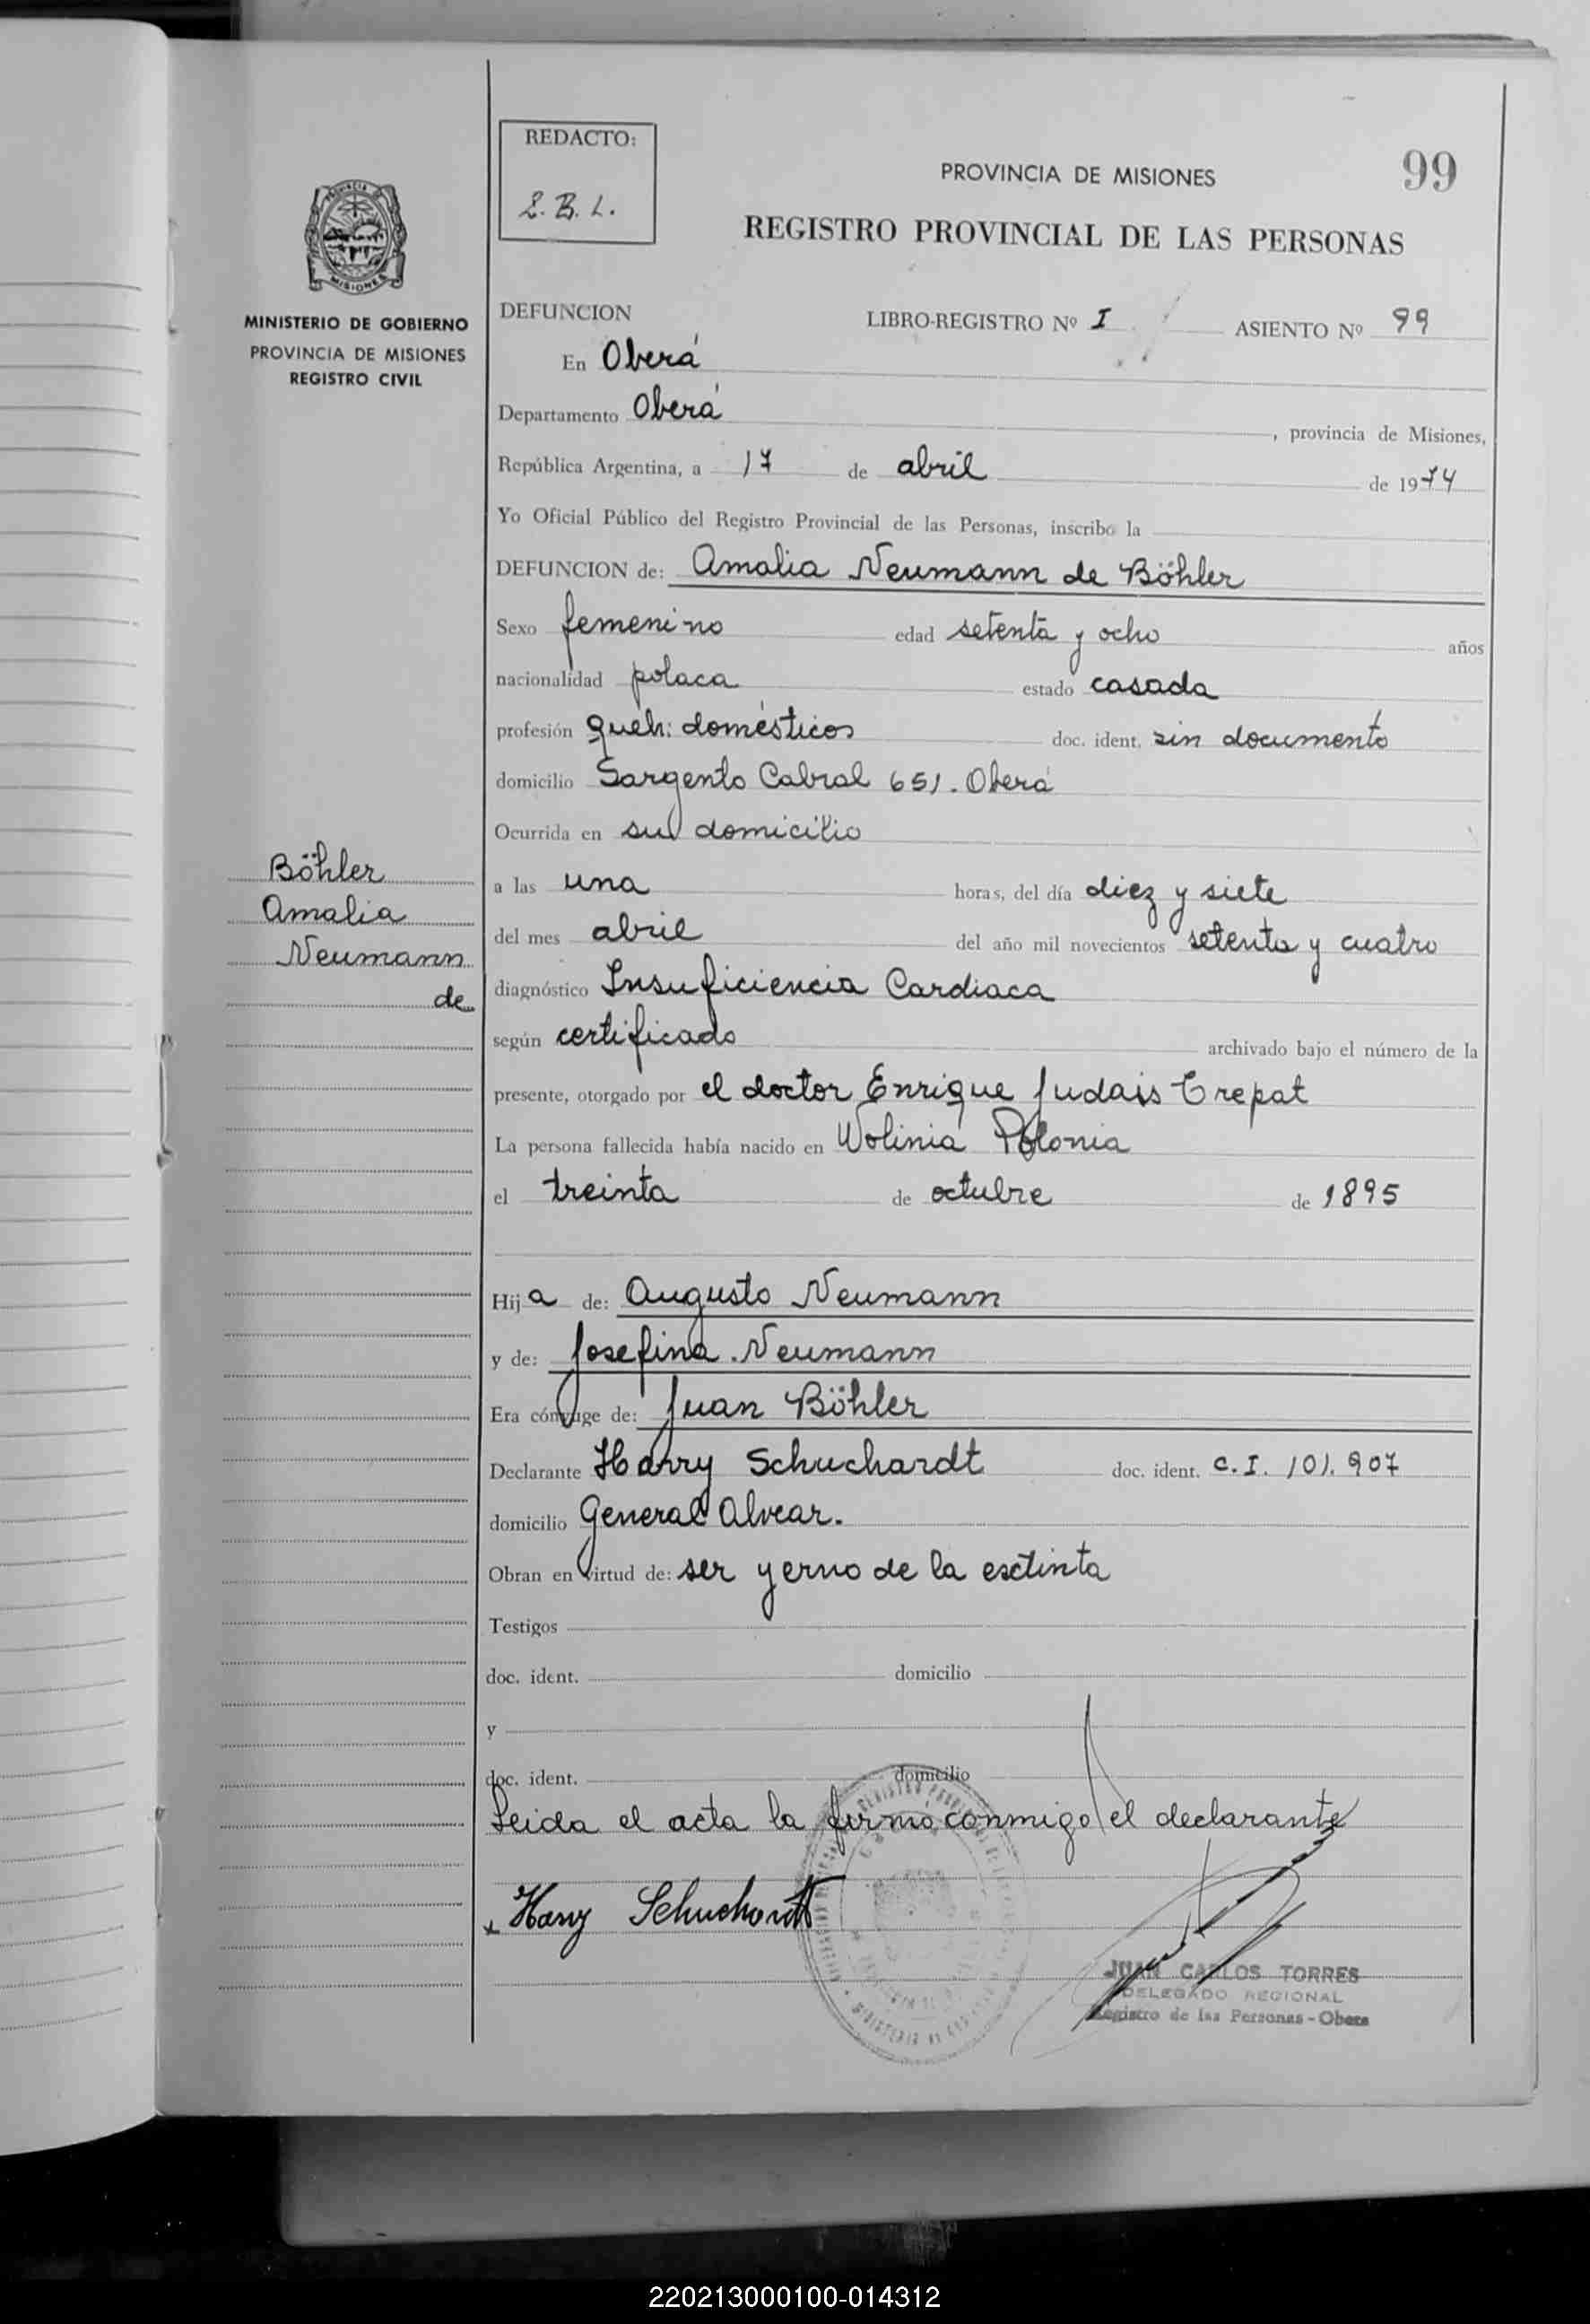 REDACTO:
L. B. L.
PROVINCIA DE MISIONES
99
REGISTRO PROVINCIAL DE LAS PERSONAS
MINISTERIO DE GOBIERNO
PROVINCIA DE MISIONES
REGISTRO CIVIL
DEFUNCION LIBRO-REGISTRO Nº I ASIENTO Nº 99
En Oberá
Departamento Oberá , provincia de Misiones,
República Argentina, a 17 de abril de 1974
Yo Oficial Público del Registro Provincial de las Personas, inscribo la
DEFUNCION de: Amalia Neumann de Böhler
Sexo femenino edad setenta y ocho años
nacionalidad polaca estado casada
profesión queh: domésticos doc. ident. sin documento
domicilio Sargento Cabral 651. Oberá
Ocurrida en su domicilio
Böhler
Amalia
Neumann
de
a las una horas, del día diez y siete
del mes abril del año mil novecientos setenta y cuatro
diagnóstico Insuficiencia Cardiaca
según certificado archivado bajo el número de la
presente, otorgado por el doctor Enrique Judais Crepat
La persona fallecida había nacido en Wolinia Polonia
el treinta de octubre de 1895
Hija de: Augusto Neumann
y de: Josefina Neumann
Era cónyuge de: Juan Böhler
Declarante Harry Schuchardt doc. ident. C.I. 101.907
domicilio General Alvear.
Obran en virtud de: ser yerno de la esctinta
Testigos
doc. ident. domicilio
y
doc. ident. domicilio
Leida el acta la firmó conmigo el declarante
x Harry Schuchardt
JUAN CARLOS TORRES
DELEGADO REGIONAL
Registro de las Personas - Obera
220213000100-014312